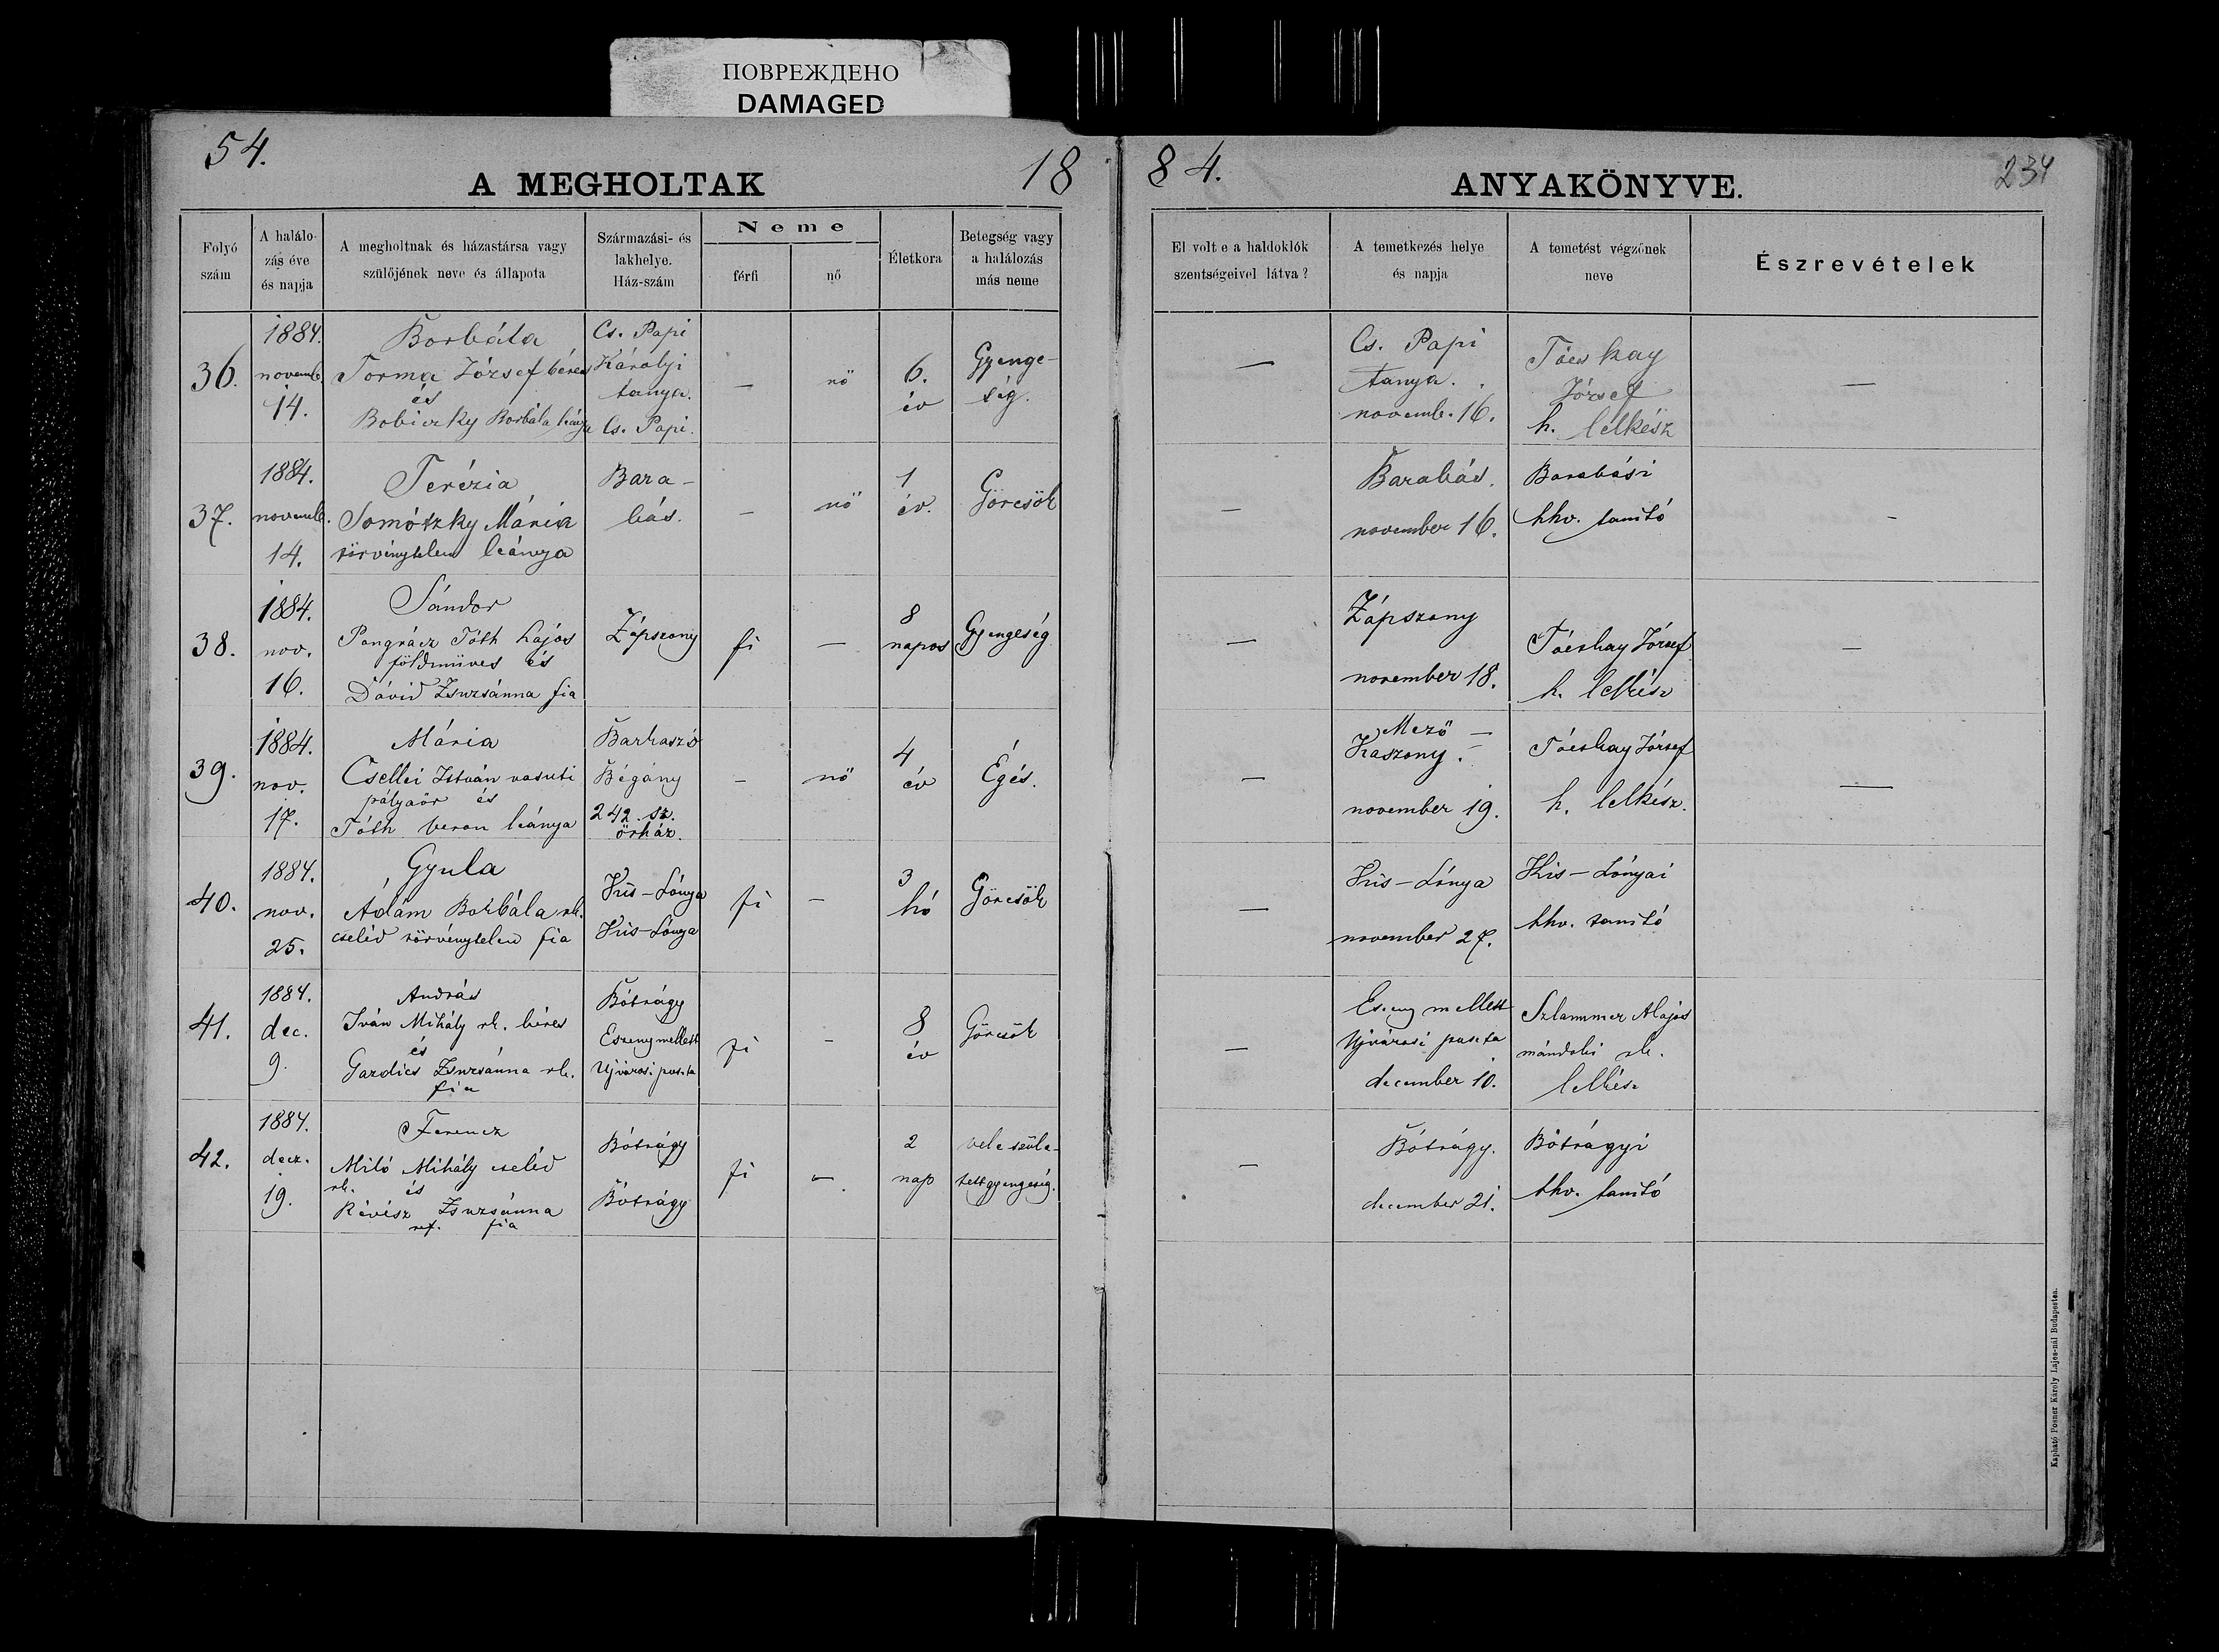 ПОВРЕЖДЕНО
DAMAGED
54.
18
84.
234
A MEGHOLTAK
ANYAKÖNYVE.
Folyó szám
A halálo-
zás éve
és napja
A megholtnak és házastársa vagy
szülőjének neve és állapota
Származási- és
lakhelye.
Ház-szám
Neme
férfi
nő
Életkora
Betegség vagy
a halálozás
más neme
El volt e a haldoklók
szentségeivel látva?
A temetkezés helye
és napja
A temetést végzőnek
neve
Észrevételek
36.
1884.
novemb.
14.
Borbála
Torma József béres
és
Bobiczky Borbála leánya
Cs. Papi
Károlyi
tanya.
Cs. Papi.
—
nő
6.
év
Gyenge-
ség.
—
Cs. Papi
tanya.
novemb. 16.
József
h. lelkész
—
37.
1884.
novemb.
14.
Terézia
Mária
törvénytelen leánya
Bara-
bás.
—
nő
1
év.
Görcsök
—
Barabás.
november 16.
Barabási
hkv. tanító
-
38.
1884.
nov.
16.
Sándor
Pongrácz Tóth Lajos
földmüves és
Dávid Zsuzsánna fia
Zápszony
fi
—
8
napos
Gyengeség
—
Zápszony
november 18.
József
h. lelkész
—
39.
1884.
nov.
17.
Mária
Csellei István vasuti
pályaör és
Tóth Veron leánya
Barkaszó
Bégány
242. sz.
örház.
-
nő
4
év
Égés.
—
Mező —
Kaszony.
november 19.
József
h. lelkész.
—
40.
1884.
nov.
25.
Gyula
Ádám Borbála rk.
cseléd törvénytelen fia
Kis-Lónya
Kis-Lónya
fi
—
3
hó
Görcsök
—
Kis-Lónya
november 27.
Kis-Lónyai
hkv. tanító
41.
1884.
dec.
9.
András
Iván Mihály rk. béres
és
Gazdics Zsuzsánna rk.
fia
Bótrágy
Eszeny mellett
Ujvárosi puszta
fi
-
8
év
Görcsök
—
Eszeny mellett
Ujvárosi puszta
december 10.
Szlammer Alajos
mándoki rk.
lelkész
42.
1884.
decz.
19.
Ferencz
Miló Mihály cseléd
rk. és
Révész Zsuzsánna
ref. fia
Bótrágy
Bótrágy
fi
—
2
nap
vele szüle-
tett gyengeség.
—
Bótrágy.
december 21.
Bótrágyi
hkv. tanító
Kapható Posner Károly Lajos-nál Budapesten.